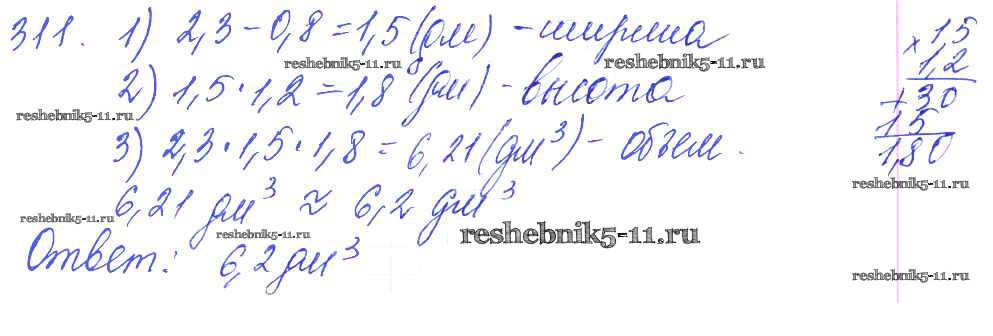 311. 1) 2,3 - 0,8 = 1,5 (дм) - ширина
reshebnik5-11.ru reshebnik5-11.ru
2) 1,5 · 1,2 = 1,8 (дм) - высота
reshebnik5-11.ru
3) 2,3 · 1,5 · 1,8 = 6,21 (дм³) - объем.
6,21 дм³ ≈ 6,2 дм³
reshebnik5-11.ru reshebnik5-11.ru
Ответ: 6,2 дм³
reshebnik5-11.ru
× 1,5
1,2
+ 30
15
1,80
reshebnik5-11.ru
reshebnik5-11.ru